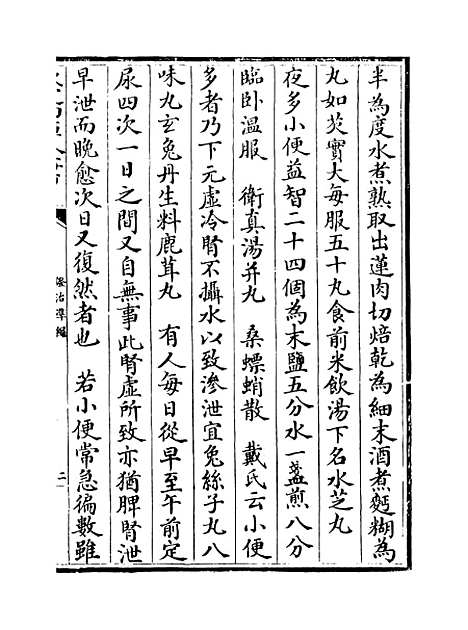 半為度水煮熟取出蓮肉切焙乾為細末酒煮麪糊為
丸如芡實大每服五十丸食前米飲湯下名水芝丸
夜多小便益智二十四個為末鹽五分水一盞煎八分
臨卧溫服　衛真湯并丸　桑螵蛸散　戴氏云小便
多者乃下元虛冷腎不攝水以致滲泄宜兔絲子丸八
味丸玄兔丹生料鹿茸丸　有人每日從早至午前定
尿四次一日之間又自無事此腎虛所致亦猶脾腎泄
早泄而晚愈次日又復然者也　若小便常急徧數雖
證治準繩